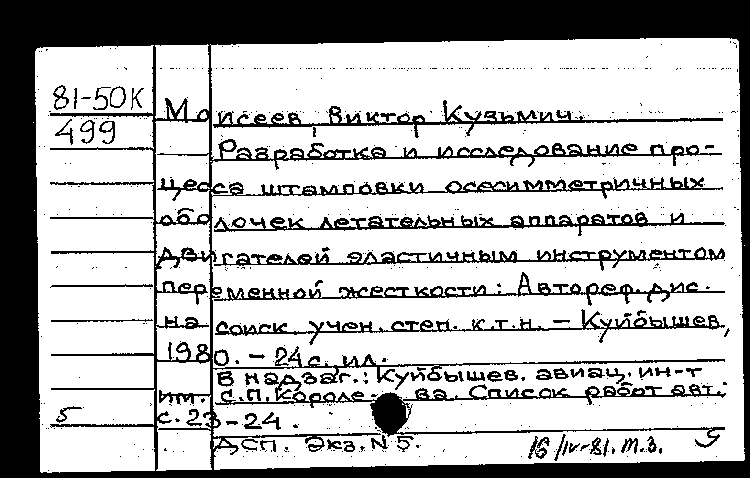 81-50К
499
Моисеев, Виктор Кузьмич.
Разработка и исследование про-
цесса штамповки осесимметричных
оболочек летательных аппаратов и
двигателей эластичным инструментом
переменной жесткости: Автореф. дис.
на соиск. учен. степ. к.т.н. – Куйбышев,
1980. – 24 с., ил.
В надзаг.: Куйбышев. авиац. ин-т
им. С.П. Короле- ва. Список работ авт.:
с. 23-24.
5
ДСП. Экз. N 5.
16/IV-81. т.з.